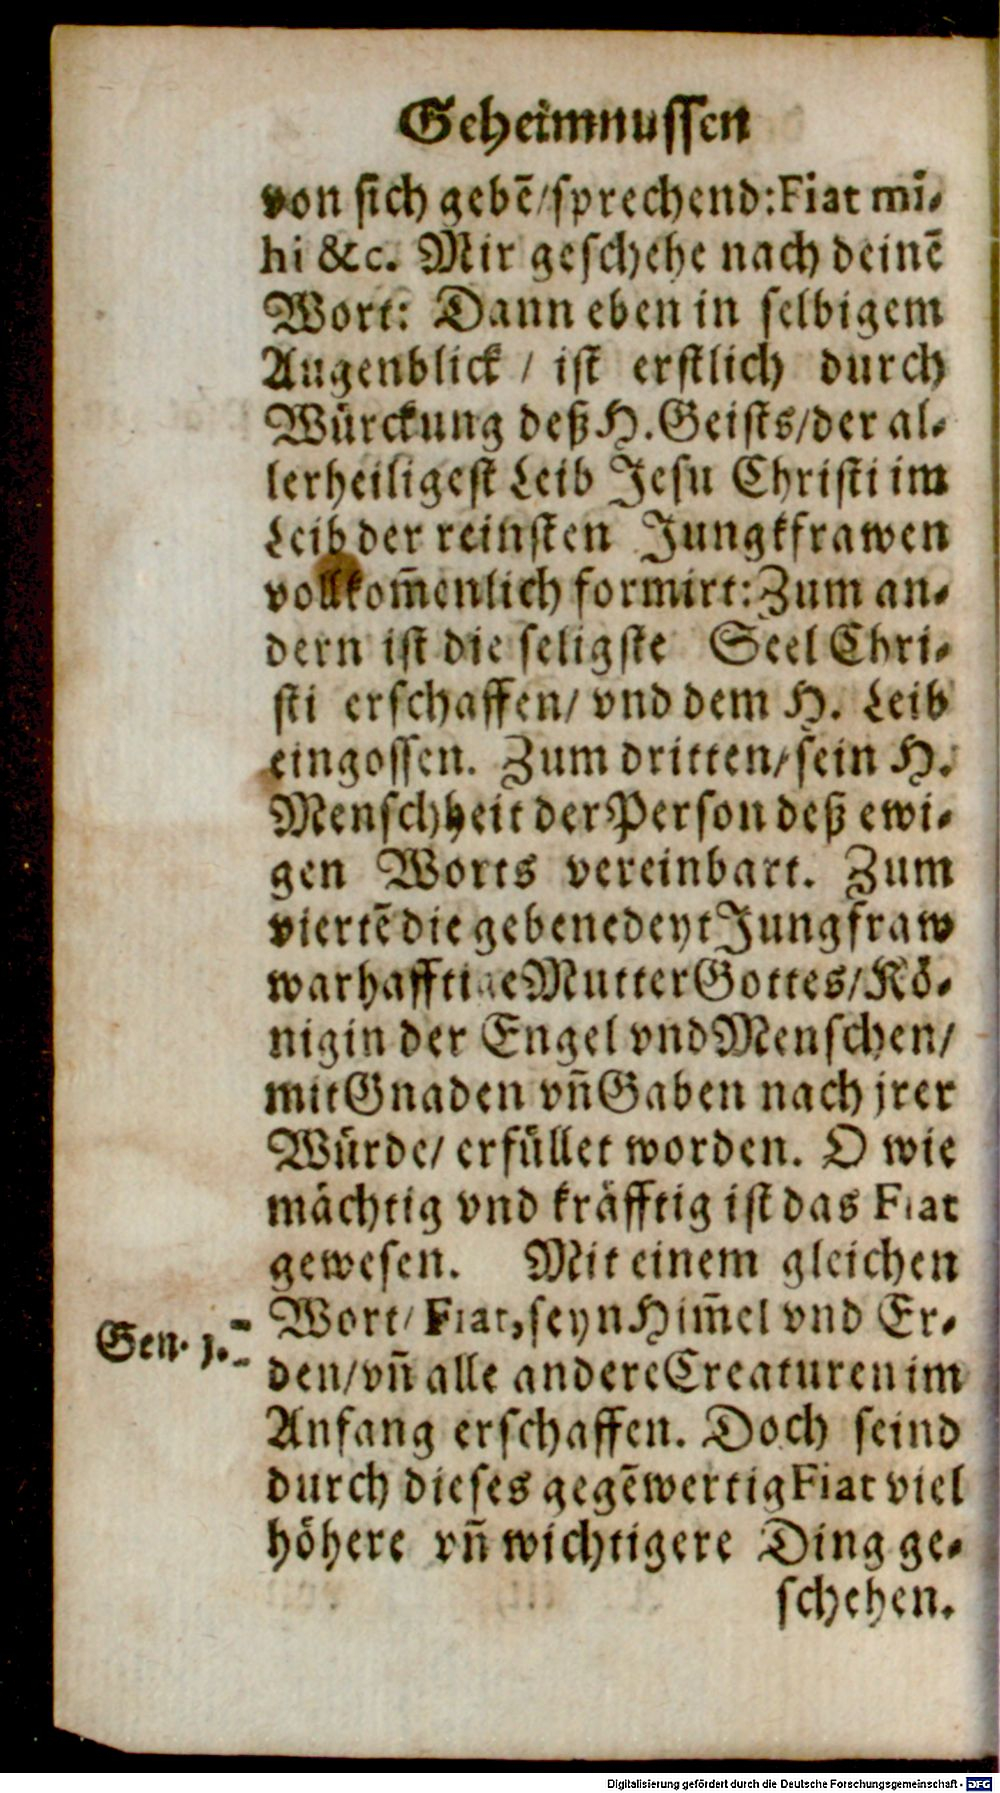 Geheimnussen
von sich gebē/sprechend: Fiat mi-
hi &c. Mir geschehe nach deinē
Wort: Dann eben in selbigem
Augenblick / ist erstlich durch
Würckung deß H. Geists/der al-
lerheiligest Leib Jesu Christi im
Leib der reinsten Jungkfrawen
vollkom̄enlich formirt: Zum an-
dern ist die seligste Seel Chri-
sti erschaffen/ vnd dem H. Leib
eingossen. Zum dritten/sein H.
Menschheit der Person deß ewi-
gen Worts vereinbart. Zum
viertē die gebenedeyt Jungfraw
warhafftige Mutter Gottes/Kö-
nigin der Engel vnd Menschen/
mit Gnaden vn̄ Gaben nach jrer
Würde/ erfüllet worden. O wie
mächtig vnd kräfftig ist das Fiat
gewesen. Mit einem gleichen
Wort/ Fiat, seyn Him̄el vnd Er-
Gen. 1.
den/vn̄ alle andere Creaturen im
Anfang erschaffen. Doch seind
durch dieses gegēwertig Fiat viel
höhere vn̄ wichtigere Ding ge-
schehen.
Digitalisierung gefördert durch die Deutsche Forschungsgemeinschaft - DFG